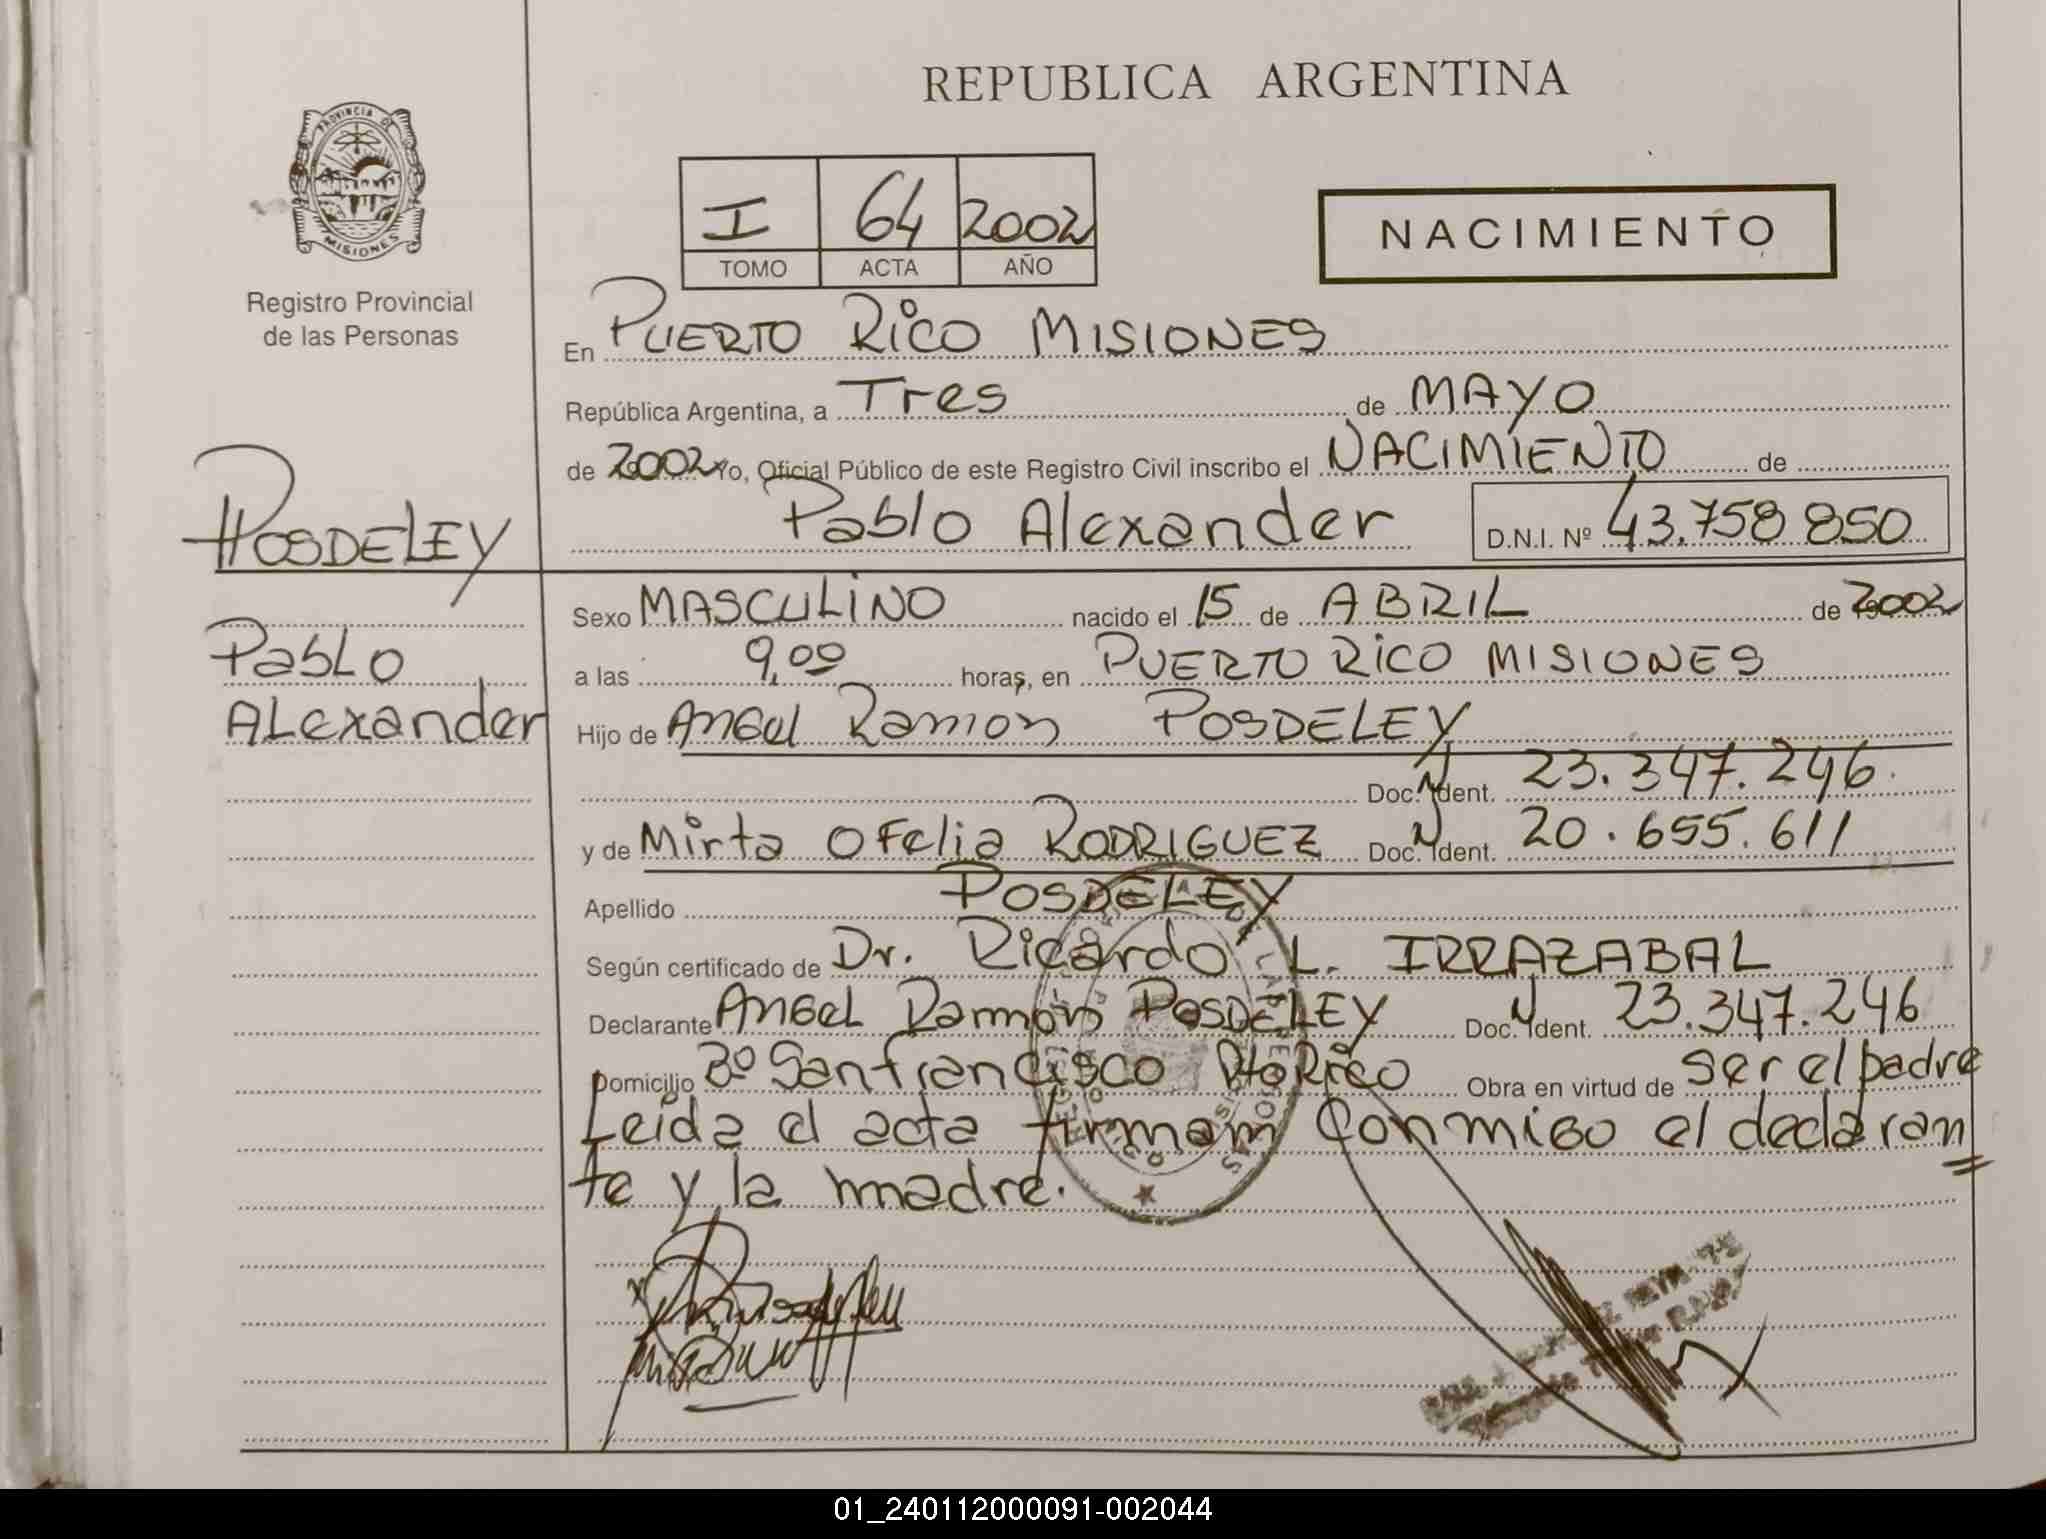 REPUBLICA ARGENTINA
PROVINCIA DE
MISIONES
Registro Provincial
de las Personas
I 64 2002
TOMO ACTA AÑO
NACIMIENTO
En PUERTO RICO MISIONES
República Argentina, a Tres de MAYO
de 2002 Yo, Oficial Público de este Registro Civil inscribo el NACIMIENTO de
Pablo Alexander D.N.I. Nº 43.758 850
POSDELEY
Pablo
Alexander
Sexo MASCULINO nacido el 15 de ABRIL de 2002
a las 9,00 horas, en PUERTO RICO MISIONES
Hijo de Angel Ramon POSDELEY
Doc. Ident. 23.347.246.
y de Mirta Ofelia RODRIGUEZ Doc. Ident. 20.655.611
Apellido POSDELEY
Según certificado de Dr. Ricardo L. IRRAZABAL
Declarante Angel Ramon POSDELEY Doc. Ident. 23.347.246
Domicilio Bº San francisco Pto Rico Obra en virtud de ser el padre
Leida el acta firmam Conmigo el declaran
te y la madre.
01_240112000091-002044